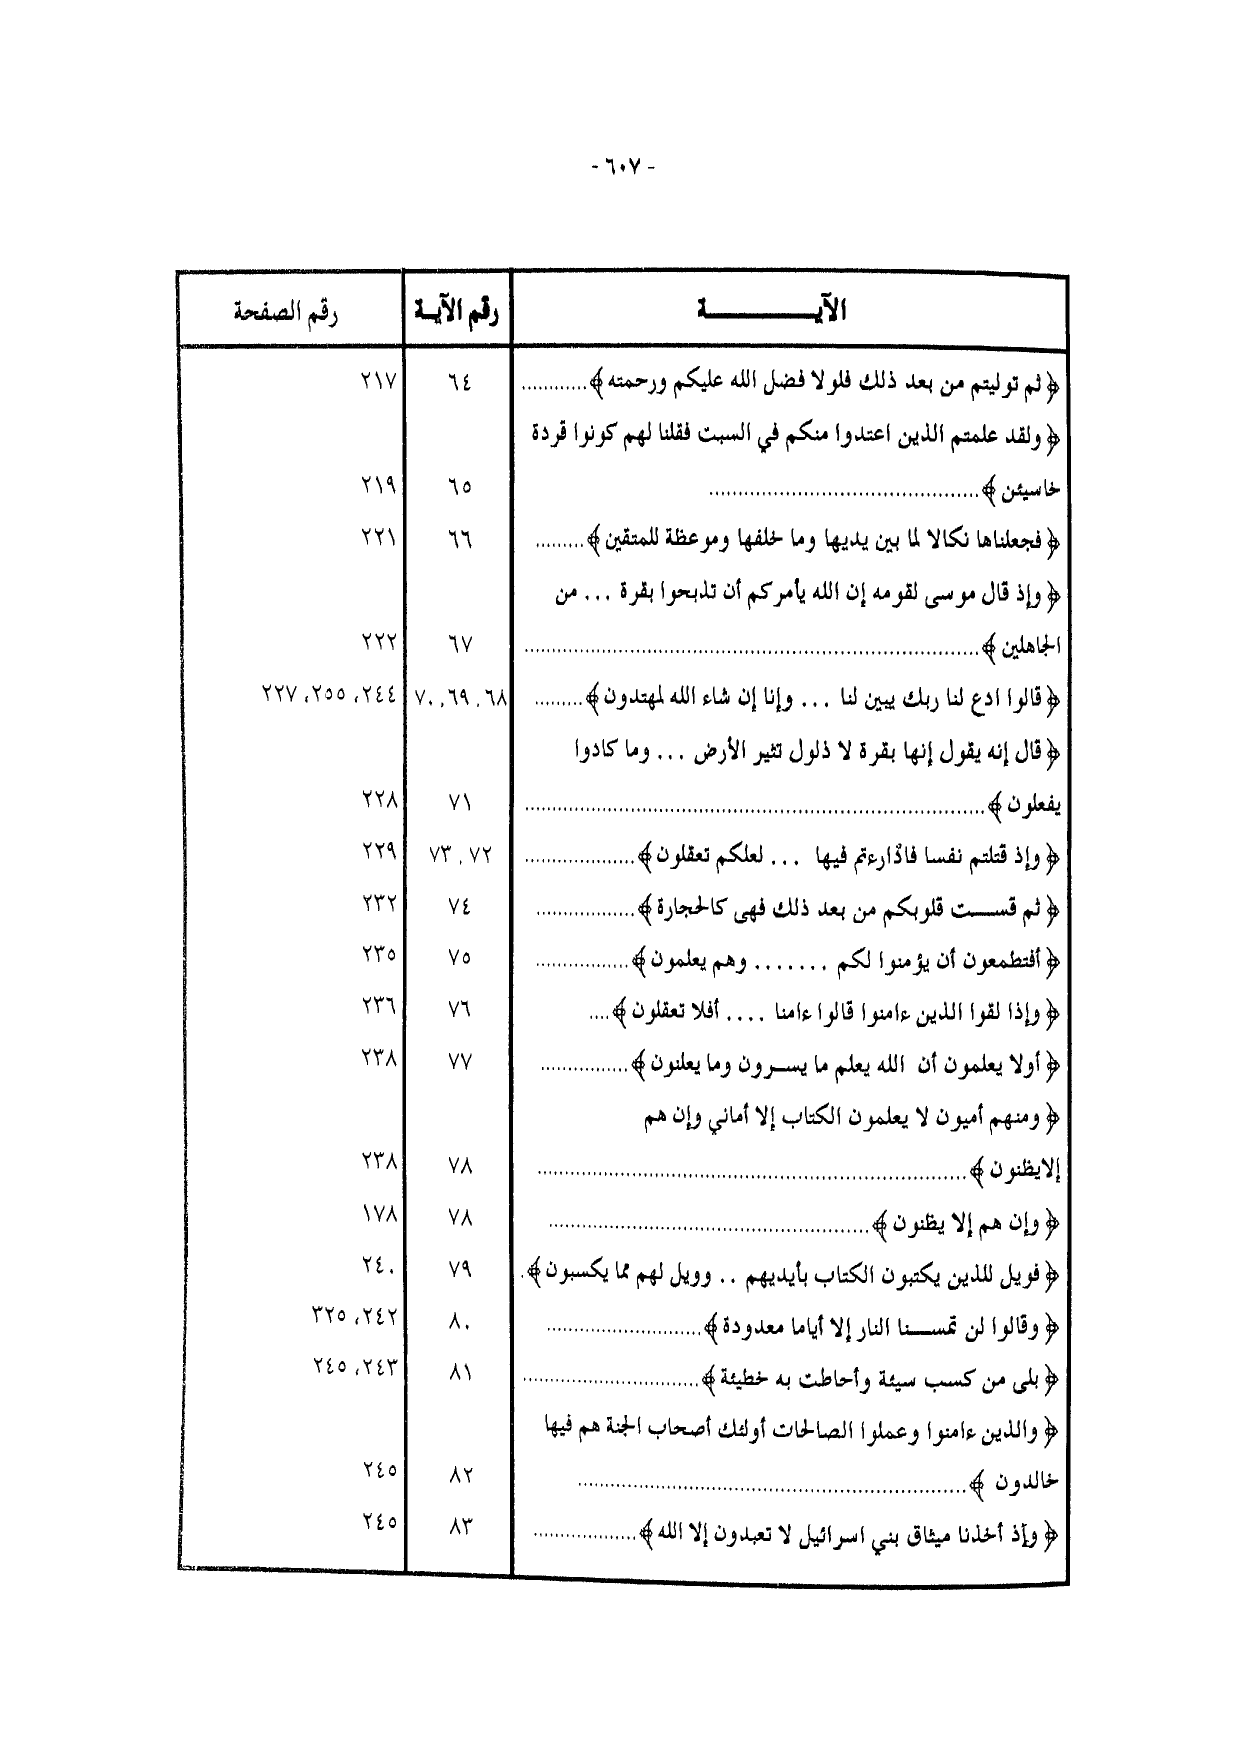 - ٦٠٧ -
الآيـــــــــة رقم الآيـة رقم الصفحة
﴿ ثم توليتم من بعد ذلك فلولا فضل الله عليكم ورحمته ﴾............ ٦٤ ٢١٧
﴿ ولقد علمتم الذين اعتدوا منكم في السبت فقلنا لهم كونوا قردة
خاسئين ﴾................................................ ٦٥ ٢١٩
﴿ فجعلناها نكالا لما بين يديها وما خلفها وموعظة للمتقين ﴾......... ٦٦ ٢٢١
﴿ وإذ قال موسى لقومه إن الله يأمركم أن تذبحوا بقرة ... من
الجاهلين ﴾................................................................ ٦٧ ٢٢٢
﴿ قالوا ادع لنا ربك يبين لنا ... وإنا إن شاء الله لمهتدون ﴾......... ٦٨، ٦٩، ٧٠ ٢٤٤، ٢٥٥، ٢٢٧
﴿ قال إنه يقول إنها بقرة لا ذلول تثير الأرض ... وما كادوا
يفعلون ﴾................................................................ ٧١ ٢٢٨
﴿ وإذ قتلتم نفسا فادّارءتم فيها ... لعلكم تعقلون ﴾.................... ٧٢، ٧٣ ٢٢٩
﴿ ثم قســت قلوبكم من بعد ذلك فهى كالحجارة ﴾.................. ٧٤ ٢٣٢
﴿ أفتطمعون أن يؤمنوا لكم ....... وهم يعلمون ﴾................. ٧٥ ٢٣٥
﴿ وإذا لقوا الذين ءامنوا قالوا ءامنا .... أفلا تعقلون ﴾.... ٧٦ ٢٣٦
﴿ أولا يعلمون أن الله يعلم ما يســرون وما يعلنون ﴾................ ٧٧ ٢٣٨
﴿ ومنهم أميون لا يعلمون الكتاب إلا أماني وإن هم
إلايظنون ﴾................................................................ ٧٨ ٢٣٨
﴿ وإن هم إلا يظنون ﴾........................................................ ٧٨ ١٧٨
﴿ فويل للذين يكتبون الكتاب بأيديهم .. وويل لهم مما يكسبون ﴾. ٧٩ ٢٤٠
﴿ وقالوا لن تمســنا النار إلا أياما معدودة ﴾............................ ٨٠ ٢٤٢، ٣٢٥
﴿ بلى من كسب سيئة وأحاطت به خطيئة ﴾................................ ٨١ ٢٤٣، ٢٤٥
﴿ والذين ءامنوا وعملوا الصالحات أولئك أصحاب الجنة هم فيها
خالدون ﴾................................................................ ٨٢ ٢٤٥
﴿ وإذ أخذنا ميثاق بني اسرائيل لا تعبدون إلا الله ﴾................... ٨٣ ٢٤٥